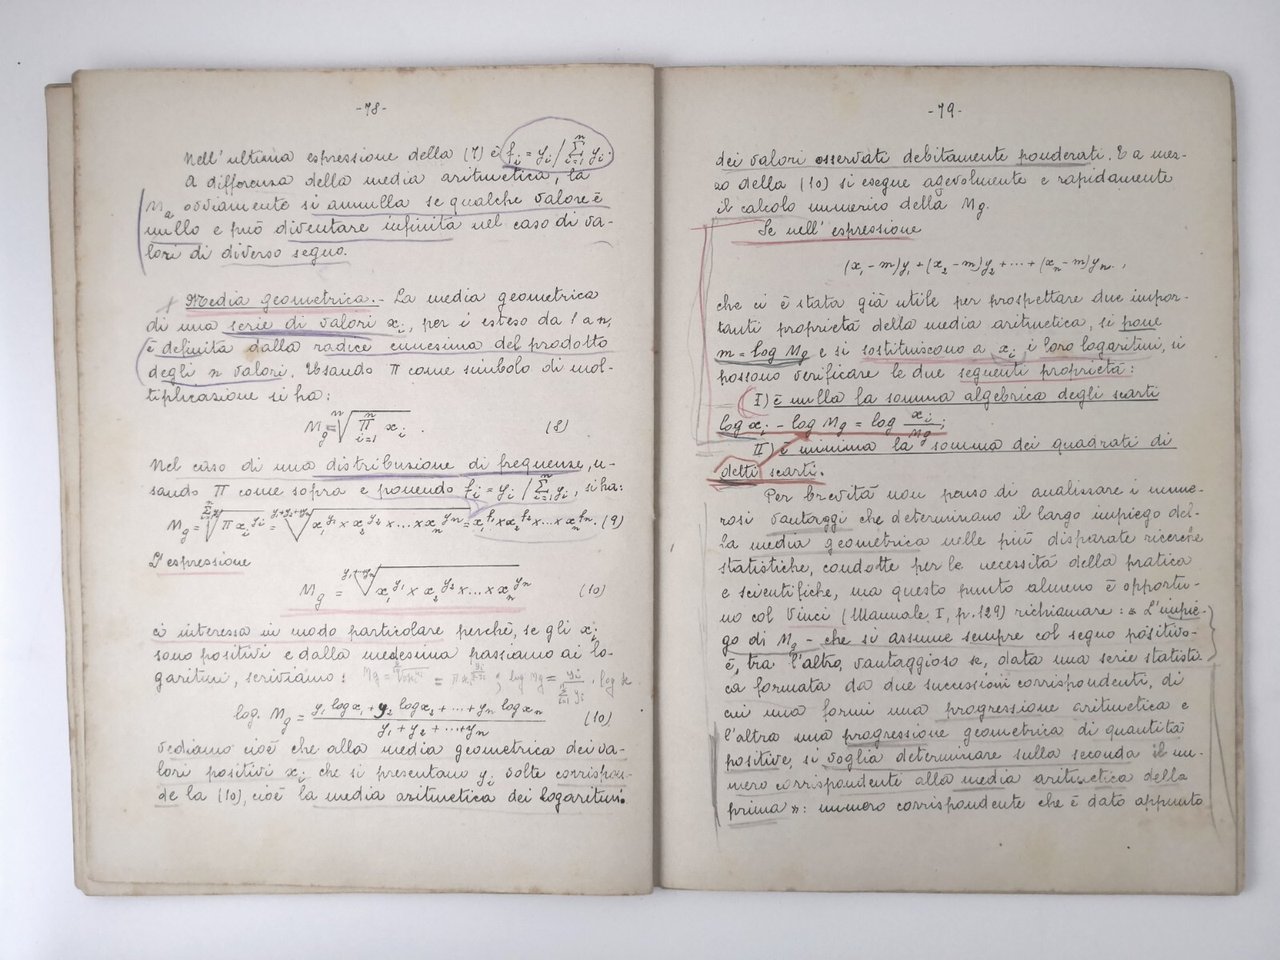 -78-
Nell'ultima espressione della (7) è f_i = y_i / Σ_{i=1}^{n} y_i.
A differenza della media aritmetica, la
M_a ovviamente si annulla se qualche valore è
nullo e può diventare infinita nel caso di va-
lori di diverso segno.
Media geometrica.- La media geometrica
di una serie di valori x_i, per i esteso da 1 a n,
è definita dalla radice ennesima del prodotto
degli n valori. Usando π come simbolo di mol-
tiplicazione si ha:
M_g = ⁿ√(π_{i=1}^{n} x_i) . (8)
Nel caso di una distribuzione di frequenze, u-
sando π come sopra e ponendo f_i = y_i / Σ_{i=1}^{n} y_i, si ha:
M_g = √(π x_i^{y_i}) = ^{y_1+y_2+...+y_n}√(x_1^{y_1} × x_2^{y_2} × ... × x_n^{y_n}) = x_1^{f_1} × x_2^{f_2} × ... × x_n^{f_n}. (9)
L'espressione
M_g = √(x_1^{y_1} × x_2^{y_2} × ... × x_n^{y_n}) (10)
ci interessa in modo particolare perchè, se gli x_i
sono positivi e dalla medesima passiamo ai lo-
garitmi, scriviamo:
log. M_g = (y_1 log x_1 + y_2 log x_2 + ... + y_n log x_n) / (y_1 + y_2 + ... + y_n) (10)
vediamo cioè che alla media geometrica dei va-
lori positivi x_i che si presentano y_i volte corrispon-
de la (10), cioè la media aritmetica dei logaritmi.
-79-
dei valori osservati debitamente ponderati. E a mez-
zo della (10) si esegue agevolmente e rapidamente
il calcolo numerico della M_g.
Se nell'espressione
(x_1 - m)y_1 + (x_2 - m)y_2 + ... + (x_n - m)y_n.,
che ci è stata già utile per prospettare due impor-
tanti proprietà della media aritmetica, si pone
m = log M_g e si sostituiscono a x_i i loro logaritmi, si
possono verificare le due seguenti proprietà:
I) è nulla la somma algebrica degli scarti
log x_i - log M_g = log x_i / M_g;
II) è minima la somma dei quadrati di
detti scarti.
Per brevità non penso di analizzare i nume-
rosi vantaggi che determinano il largo impiego del-
la media geometrica nelle più disparate ricerche
statistiche, condotte per le necessità della pratica
e scientifiche, ma questo punto almeno è opportu-
no col Vinci (Manuale I, p. 129) richiamare: « L'impie-
go di M_g - che si assume sempre col segno positivo -
è, tra l'altro, vantaggioso se, data una serie statisti-
ca formata da due successioni corrispondenti, di
cui una formi una progressione aritmetica e
l'altra una progressione geometrica di quantità
positive, si voglia determinare sulla seconda il nu-
mero corrispondente alla media aritmetica della
prima »: numero corrispondente che è dato appunto